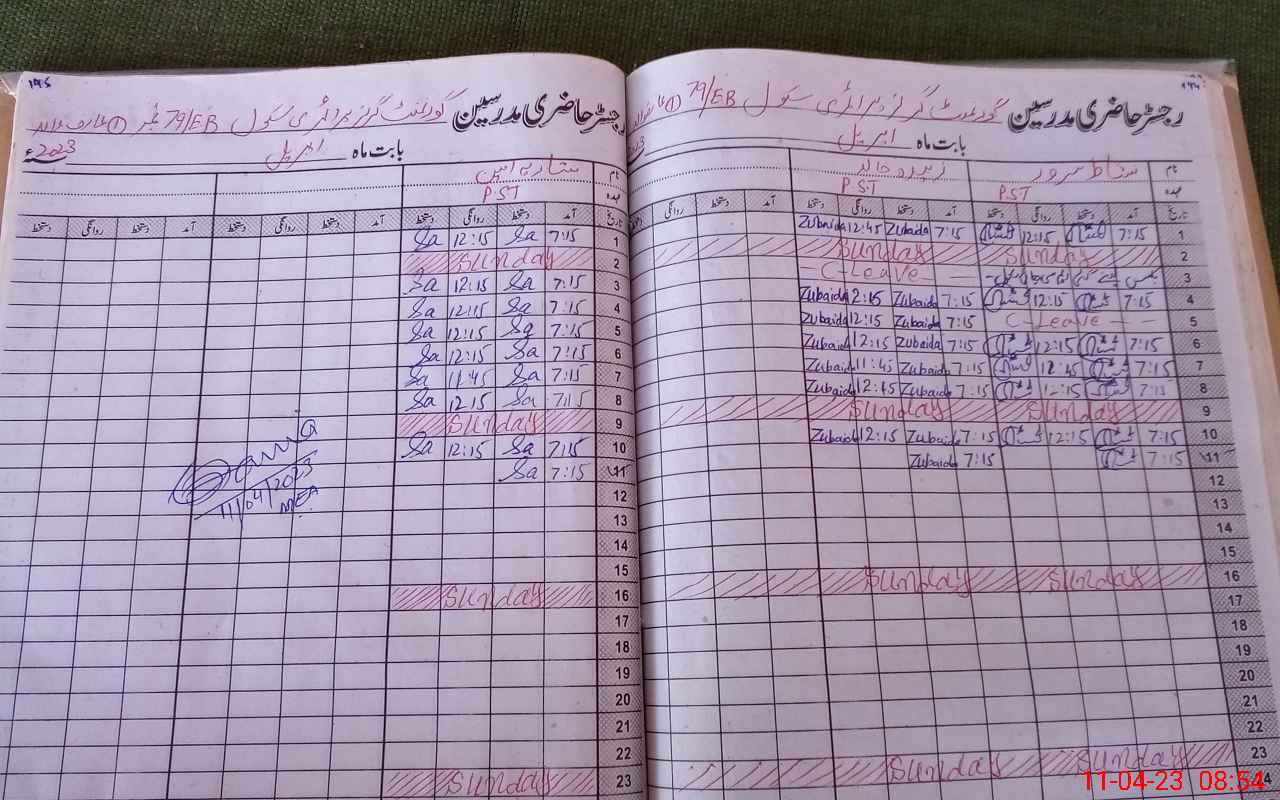 ۱۹۴
رجسٹر حاضری مدرسین گورنمنٹ گرلز پرائمری سکول 79/EB
بابت ماہ اپریل
نام سرور زبیدہ خالد
عہدہ PST PST
تاریخ آمد دستخط روانگی دستخط آمد دستخط روانگی دستخط آمد دستخط روانگی
1 7:15 12:15 7:15 Zubaida 12:45 Zubaida
2 Sunday Sunday
3 — C-Leave —
4 7:15 12:15 7:15 Zubaida 12:15 Zubaida
5 C-Leave — — 7:15 Zubaida 12:15 Zubaida
6 7:15 12:15 7:15 Zubaida 12:15 Zubaida
7 7:15 7:15 Zubaida 11:45 Zubaida
8 7:15 12:15 7:15 Zubaida Zubaida
9 Sunday Sunday
10 7:15 12:15 7:15 Zubaida 12:15 Zubaida
11 7:15 7:15 Zubaida
12
13
14
15
16 Sunday Sunday
17
18
19
20
21
22
23 Sunday Sunday
۱۹۵
رجسٹر حاضری مدرسین گورنمنٹ گرلز پرائمری سکول 79/EB نمبر ① عارف والہ
بابت ماہ اپریل 2023ء
نام
عہدہ PST
تاریخ آمد دستخط روانگی دستخط آمد دستخط روانگی دستخط آمد دستخط روانگی دستخط
1 7:15 Sa 12:15 Sa
2 Sunday
3 7:15 Sa 12:15 Sa
4 7:15 Sa 12:15 Sa
5 7:15 Sa 12:15 Sa
6 7:15 Sa 12:15 Sa
7 7:15 Sa 11:45 Sa
8 7:15 Sa 12:15 Sa
9 Sunday
10 7:15 Sa 12:15 Sa
11 7:15 Sa
12
13
14
15
16 Sunday
17
18
19
20
21
22
23 Sunday
11/04/2023
MEA
11-04-23 08:54